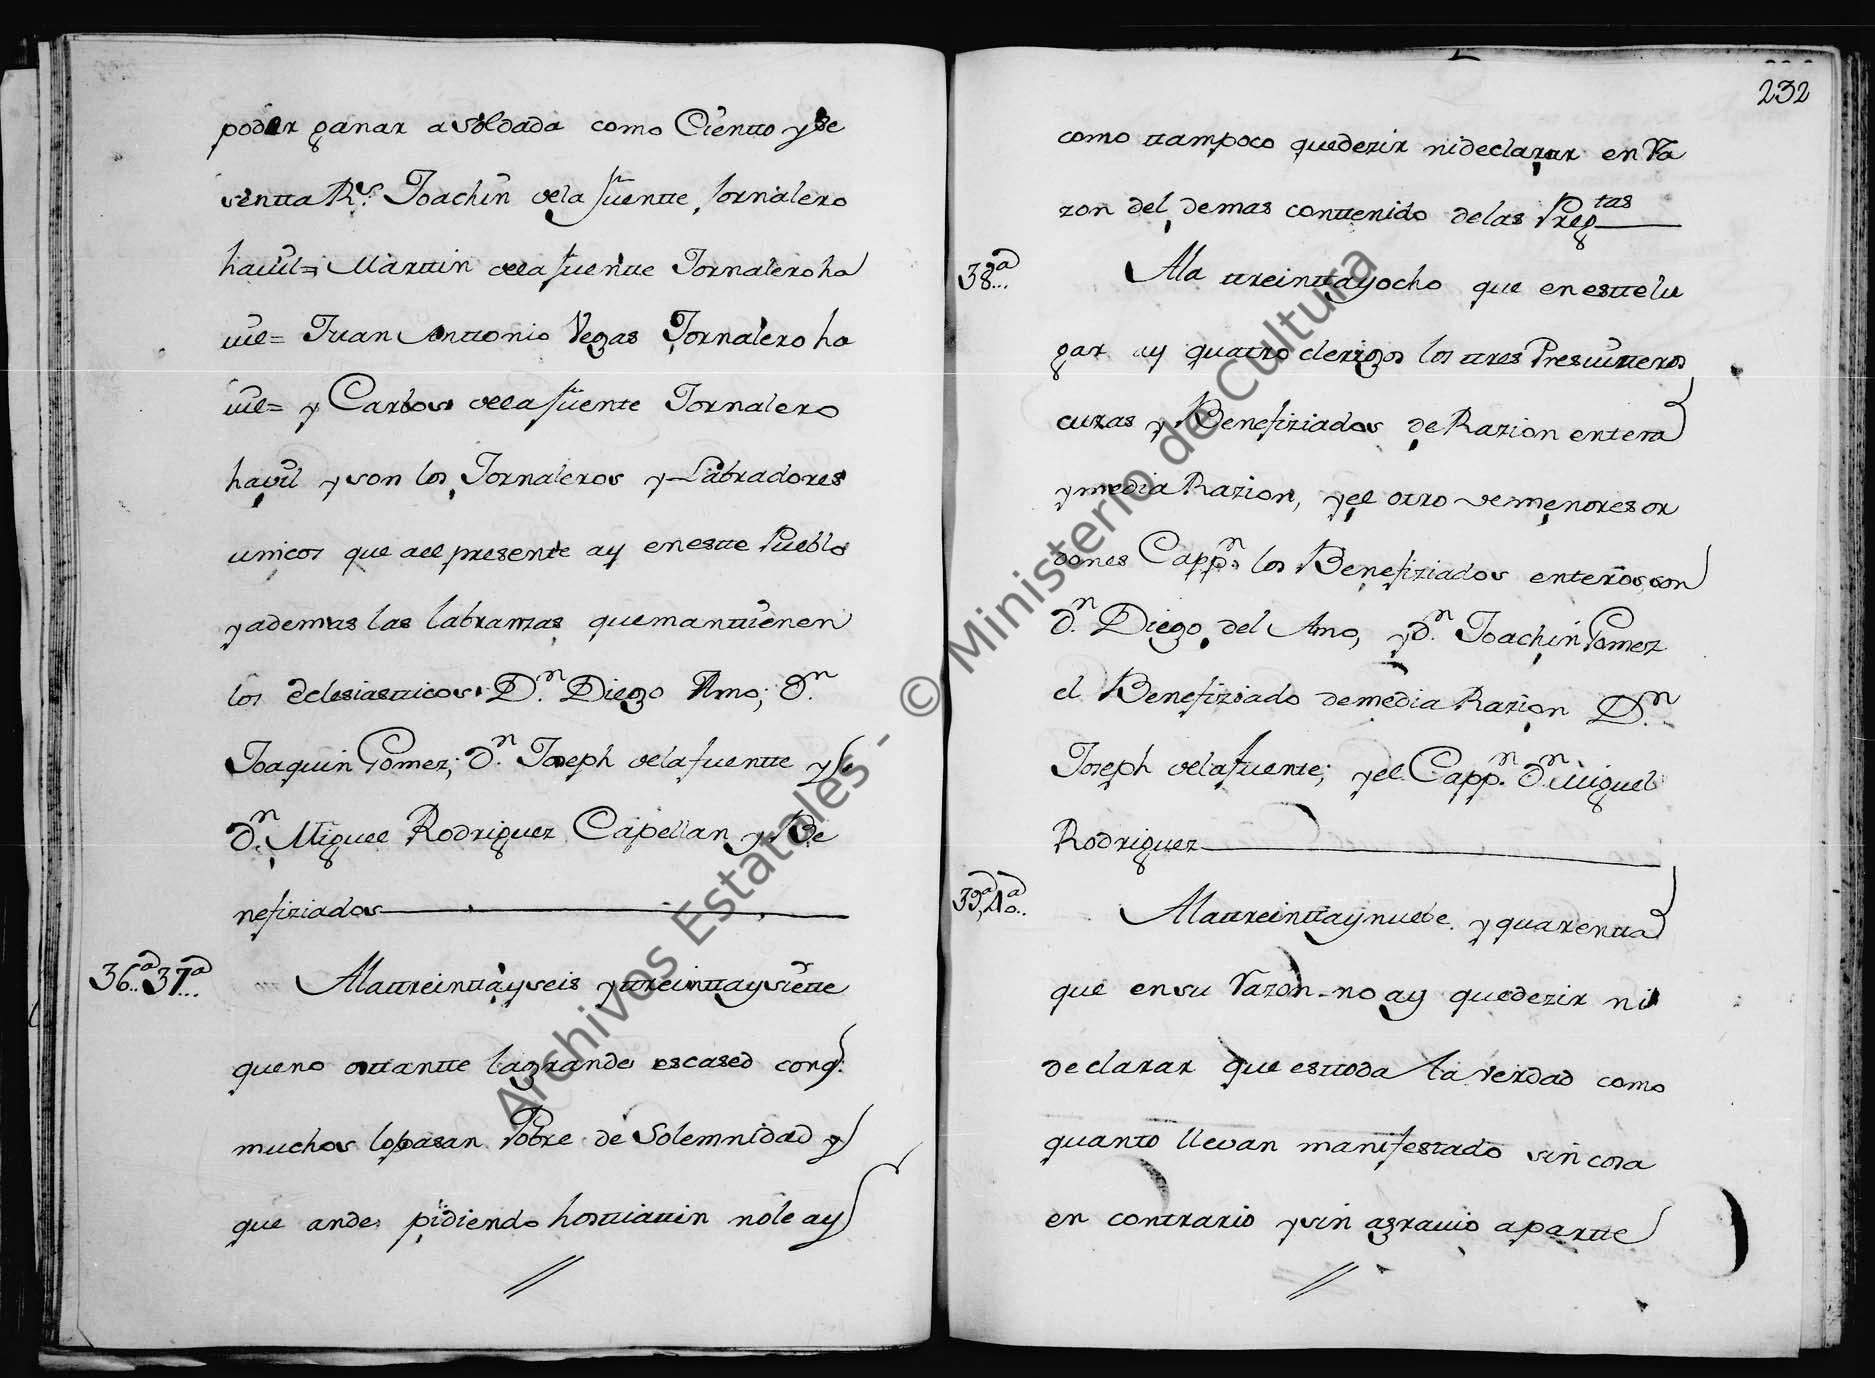 poder ganar a soldada como Ciento y se
sentta R.s Joachin dela fuentte, Jornalero
havil= Marttin dela fuentte Jornalero ha
vil= Juan Anttonio Vegas Jornalero ha
vil= y Carlos dela fuente Jornalero
havil y son los Jornaleros y Labradores
unicos que al presente ay en estte Pueblo
y ademas las labranzas que manttienen
los eclesiasticos D.n Diego Amo; d.n
Joaquin Gomez; d.n Joseph dela fuentte y
d.n Miguel Rodriguez Capellan y Be
nefiziados
36.ª 37.ª Ala ttreintta y seis y ttreintta y siette
que no ottantte la grande escased con q.
muchos lo pasan Pobre de Solemnidad y
que ande pidiendo hosttiattin no le ay
232
como ttampoco que dezir ni declarar en Ra
zon del demas conttenido de las Preg.tas
38.ª Ala ttreintta y ocho que en estte lu
gar ay quattro clerigos los ttres Presvitteros
curas y Benefiziados de Razion entera
y media Razion, y el otro de menores or
dones Capp.n los Benefiziados enteros son
d.n Diego del Amo, y d.n Joachin Gomez
el Benefiziado de media Razion D.n
Joseph dela fuente; y el Capp.n d.n Miguel
Rodriguez
39.ª 40.ª Ala ttreintta y nuebe y quarentta
que en su razon no ay que dezir ni
declarar que es ttoda la verdad como
quanto llevan manifestado sin cosa
en contrario y sin agravio a partte
Archivos Estatales - © Ministerio de Cultura